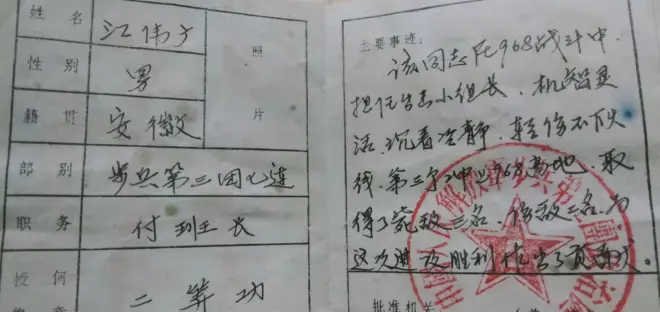 姓名 江伟
照片
性别 男
籍贯 安徽
部别 步兵第三团七连
职务 付班长
授何
二等功
主要事迹:
该同志在968战斗中,
担任 小组长、机智灵
活、沉着冷静、轻伤不下火
线、第三个冲上968高地、取
得了毙敌三名、伤敌三名、为
这次进攻胜利作出了贡献。
批准机关